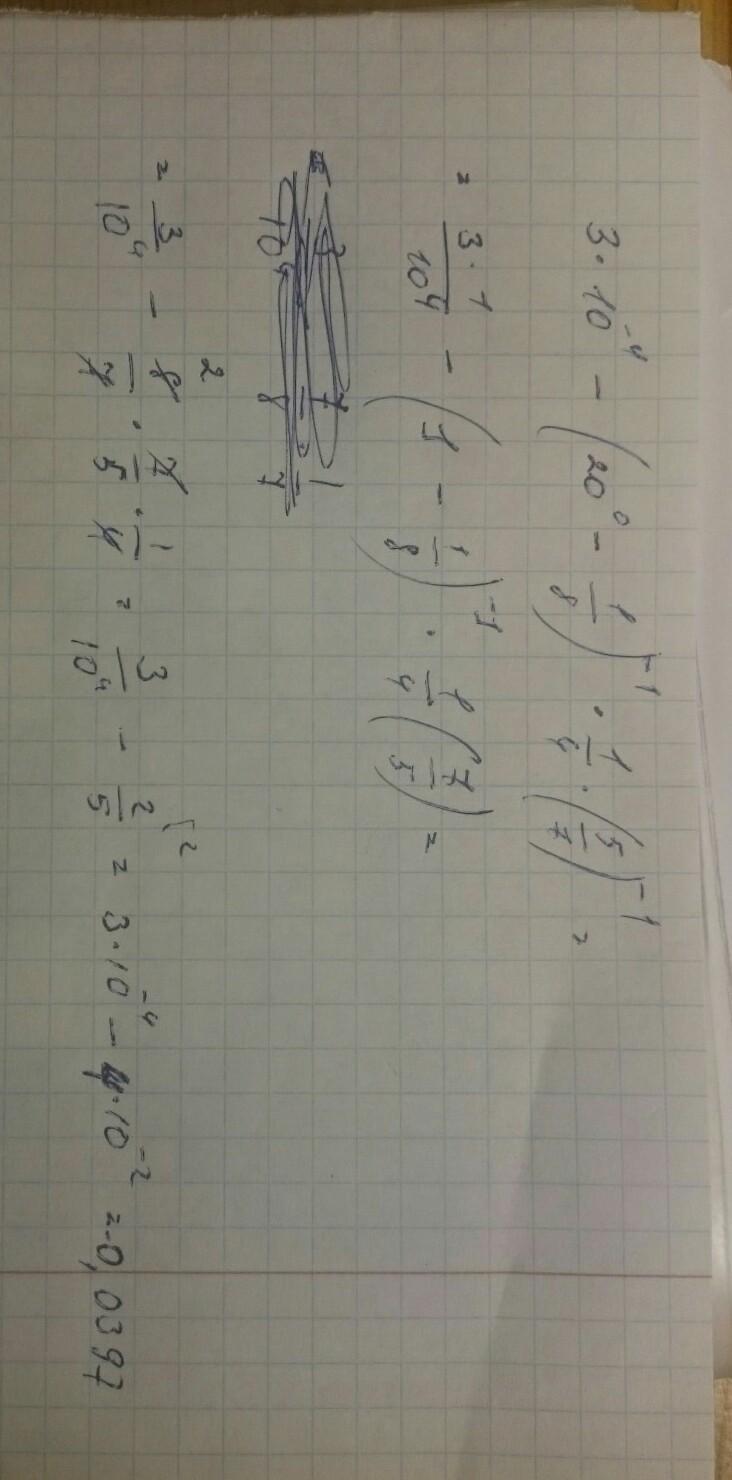 3·10⁻⁴ − (20⁰ − 1/8)⁻¹ · 1/4 · (5/7)⁻¹ =
= 3·1/10⁴ − (1 − 1/8)⁻¹ · 1/4 (7/5) =
= 3/10⁴ − 8/7 · 7/5 · 1/4 = 3/10⁴ − 2/5 = 3·10⁻⁴ − 4·10⁻² = -0,0397